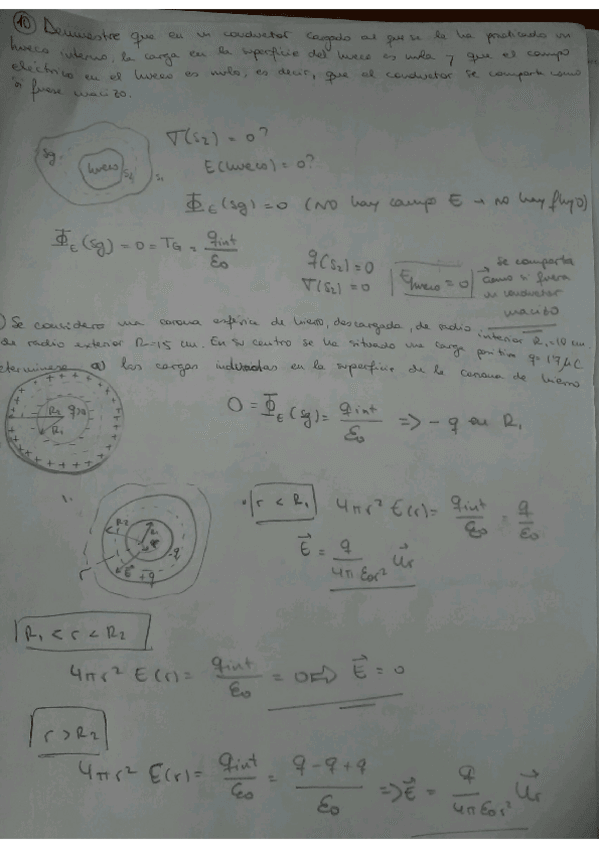 10 Demuestre que en un conductor cargado al que se le ha practicado un
hueco interno, la carga en la superficie del hueco es nula y que el campo
eléctrico en el hueco es nulo, es decir, que el conductor se comporta como
si fuese macizo.
Sg
hueco
S2
S1
σ(S2) = 0?
E(hueco) = 0?
Φ_E (Sg) = 0 (NO hay campo E → no hay flujo)
Φ_E (Sg) = 0 = T_G = qint/ε0
q(S2) = 0
σ(S2) = 0
E hueco = 0 → se comporta
como si fuera
un conductor
macizo
) Se considera una corona esférica de hierro, descargada, de radio interior R1 = 10 cm
de radio exterior R=15 cm. En su centro se ha situado una carga positiva q = 17 μC
determinese a) las cargas inducidas en la superficie de la corona de hierro
R2 q>0
R1
0 = Φ_E (Sg) = qint/ε0 => -q en R1
r < R1 4πr² E(r) = qint/ε0 = q/ε0
R2
-q
r
E = q/4πε0r² ur
R1 < r < R2
4πr² E(r) = qint/ε0 = 0 => E = 0
r > R2
4πr² E(r) = qint/ε0 = q - q + q/ε0 => E = q/4πε0r² ur